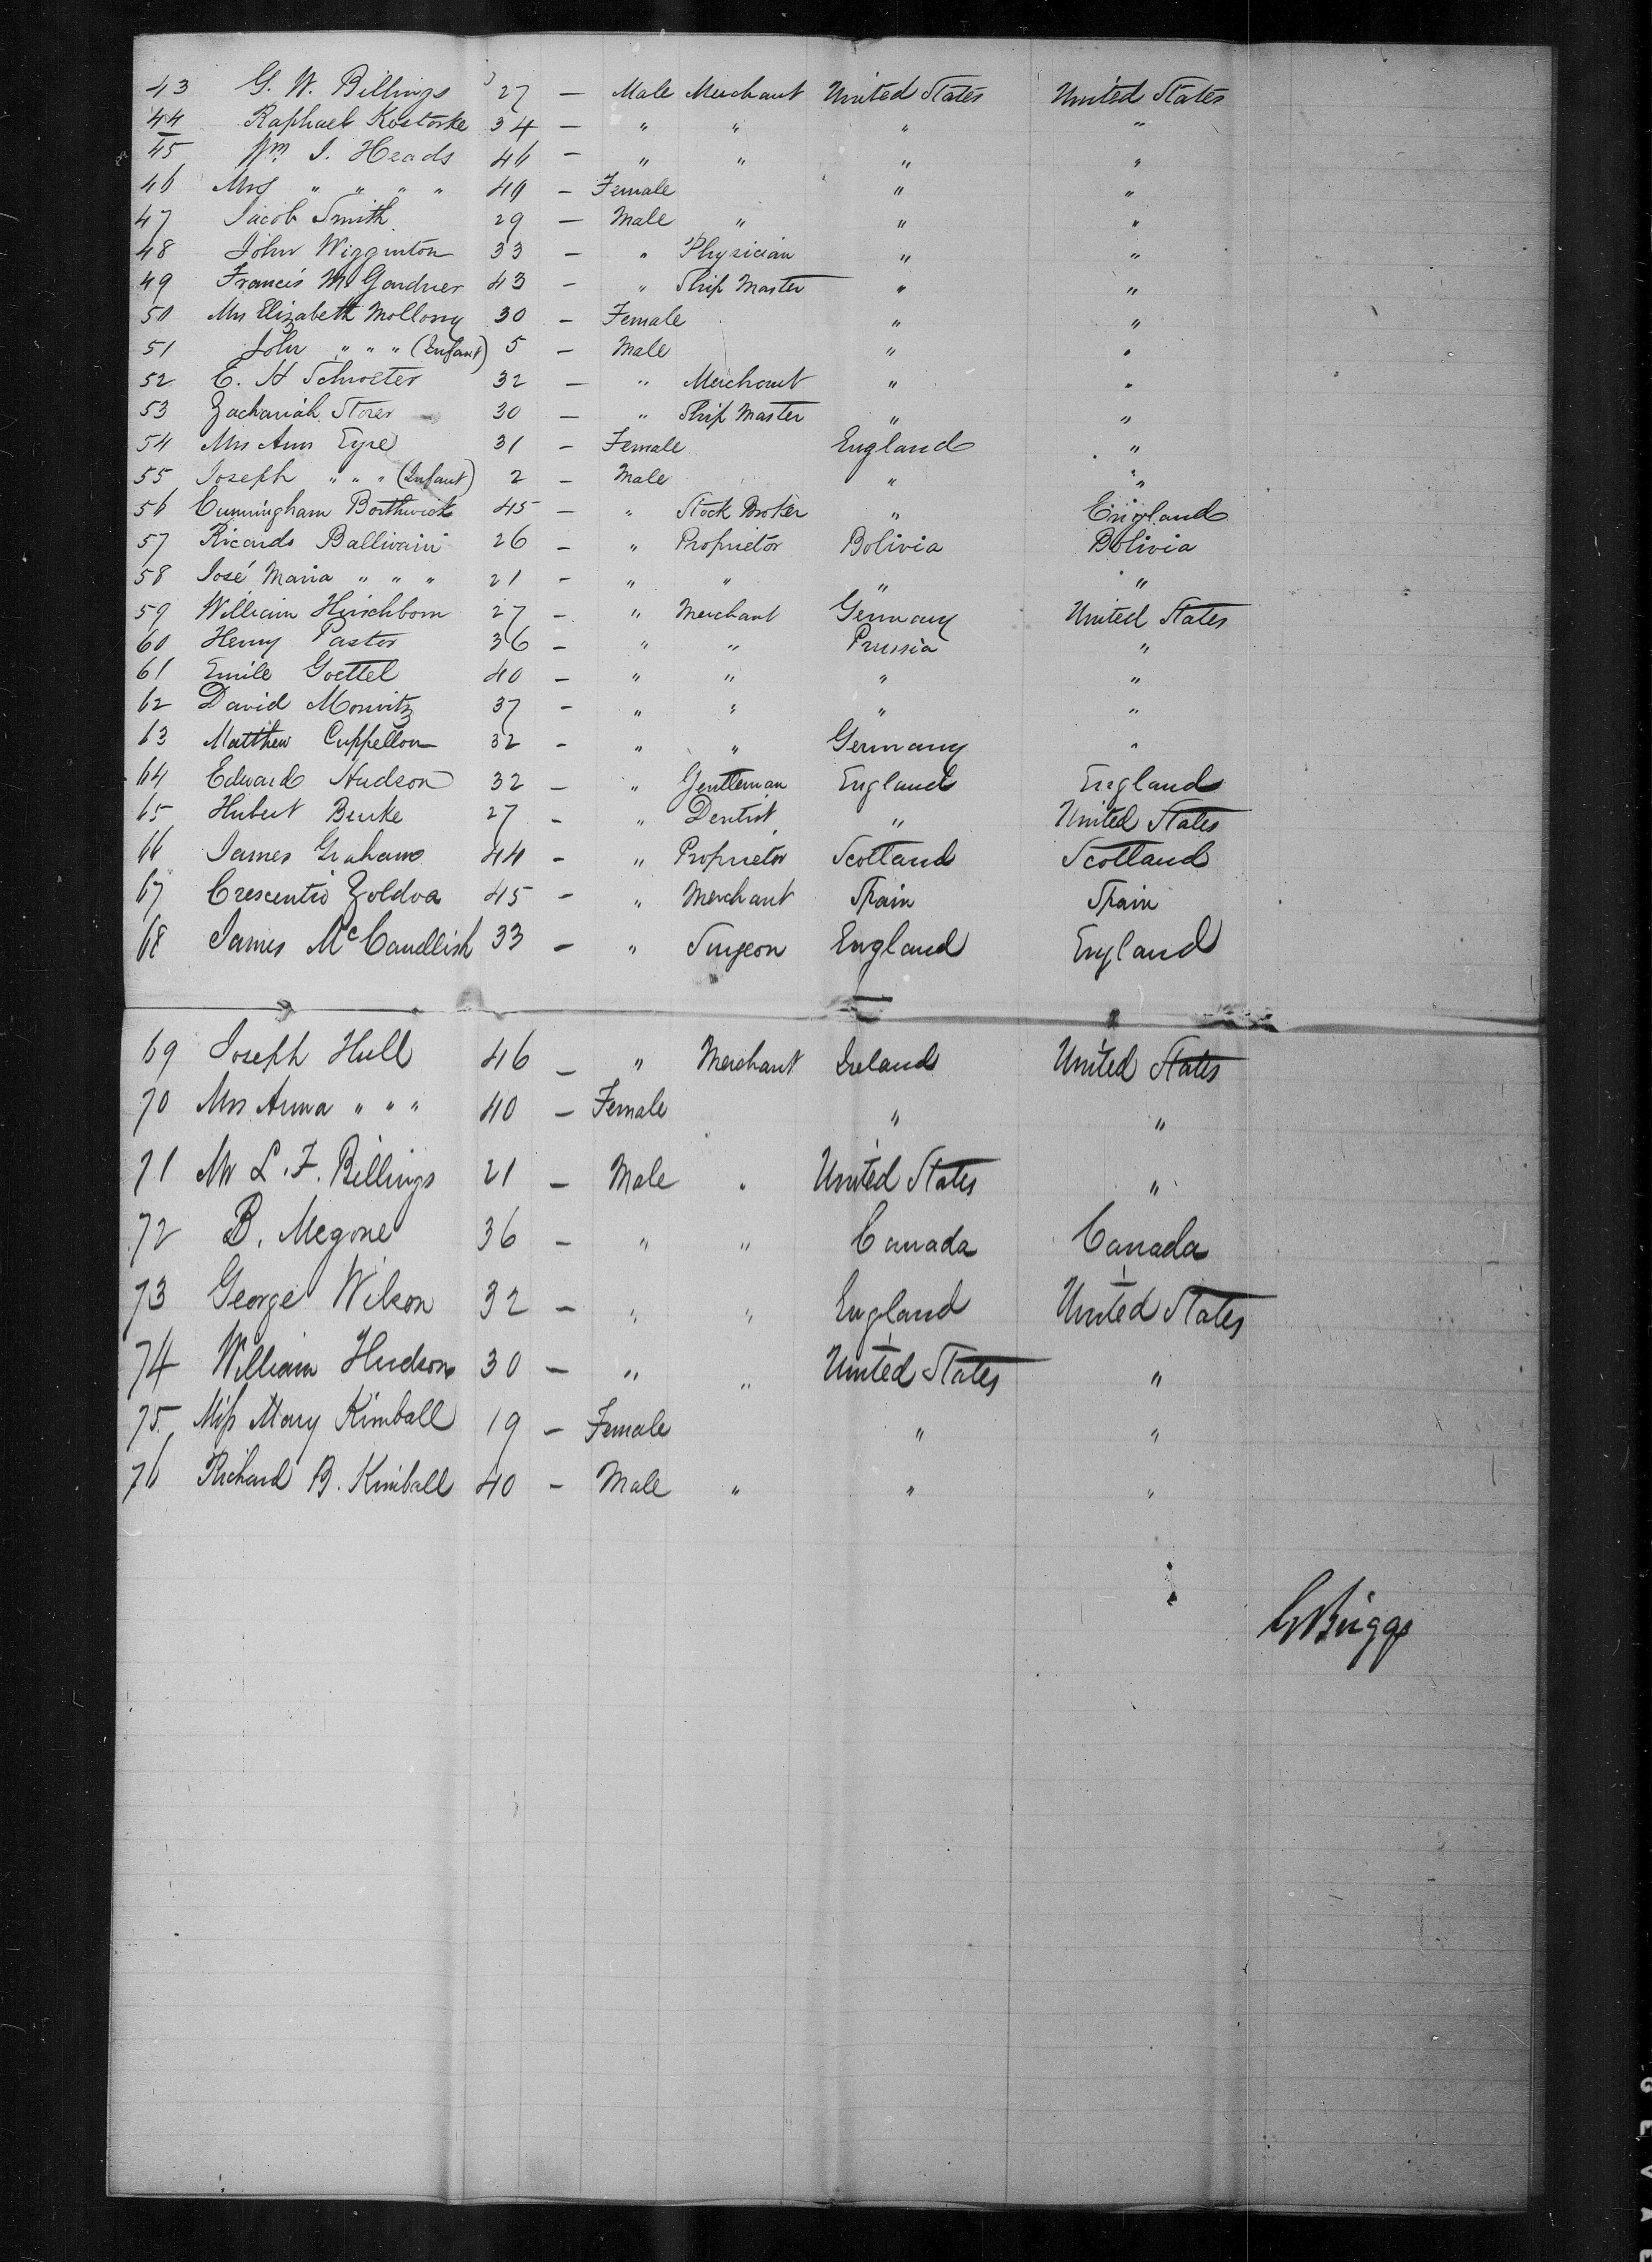 43 G. W. Billings 27 — Male Merchant United States United States
44 Raphael Kostorke 34 — " " " "
45 Wm I. Heads 46 — " " " "
46 Mrs " " " " 40 — Female " "
47 Jacob Smith 29 — Male " " "
48 John Wigginton 33 — " Physician " "
49 Francis M. Gardner 43 — " Ship Master " "
50 Mrs Elizabeth Mollony 30 — Female " "
51 John " " " (Infant) 5 — Male " "
52 E. H Schroeter 32 — " Merchant " "
53 Zachariah Storer 30 — " Ship Master " "
54 Mrs Ann Eyre 31 — Female England "
55 Joseph " " " (Infant) 2 — Male " "
56 Cunningham Borthwick 45 — " Stock Broker " England
57 Ricardo Ballivain 26 — " Proprietor Bolivia Bolivia
58 José Maria " " " 21 — " " " "
59 William Hirschborn 27 — " Merchant Germany United States
60 Henry Pastor 36 — " " Prussia "
61 Emile Goettel 40 — " " " "
62 David Morwitz 37 — " " " "
63 Matthew Cuppellon 32 — " " Germany "
64 Edward Hudson 32 — " Gentleman England England
65 Hubert Burke 27 — " Dentist " United States
66 James Graham 44 — " Proprietor Scotland Scotland
67 Crescentio Zoldoa 45 — " Merchant Spain Spain
68 James McCandlish 33 — " Surgeon England England
69 Joseph Hull 46 — " Merchant Ireland United States
70 Mrs Anna " " " 40 — Female " "
71 Mr L. F. Billings 21 — Male " United States "
72 B. Megone 36 — " " Canada Canada
73 George Wilson 32 — " " England United States
74 William Hudson 30 — " " United States "
75 Miss Mary Kimball 19 — Female " "
76 Richard B. Kimball 40 — Male " " "